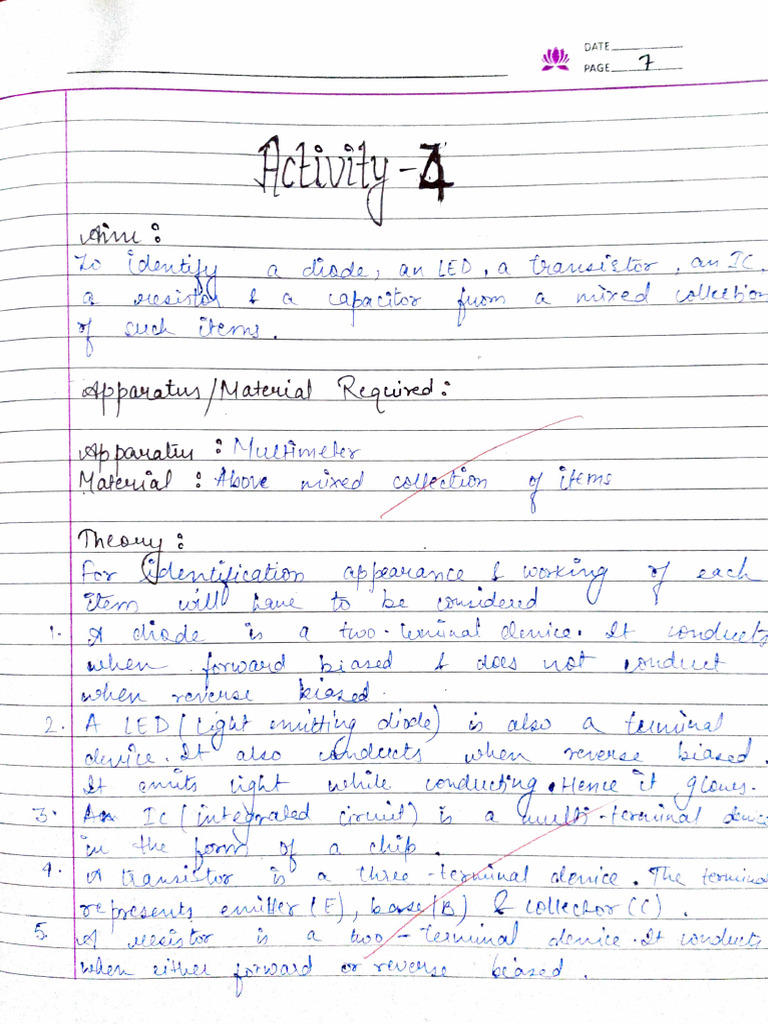 DATE
PAGE 7
Activity - 4
Aim :
To identify a diode, an LED, a transistor, an IC,
a resistor & a capacitor from a mixed collection
of such items.
Apparatus/Material Required :
Apparatus : Multimeter
Material : Above mixed collection of items
Theory :
For identification appearance & working of each
item will have to be considered
1. A diode is a two-terminal device. It conducts
when forward biased & does not conduct
when reverse biased.
2. A LED (light emitting diode) is also a terminal
device. It also conducts when reverse biased.
It emits light while conducting. Hence it glows.
3. An IC (integrated circuit) is a multi-terminal device
in the form of a chip.
4. A transistor is a three-terminal device. The terminal
represents emitter (E), base (B) & collector (C).
5. A resistor is a two-terminal device. It conducts
when either forward or reverse biased.